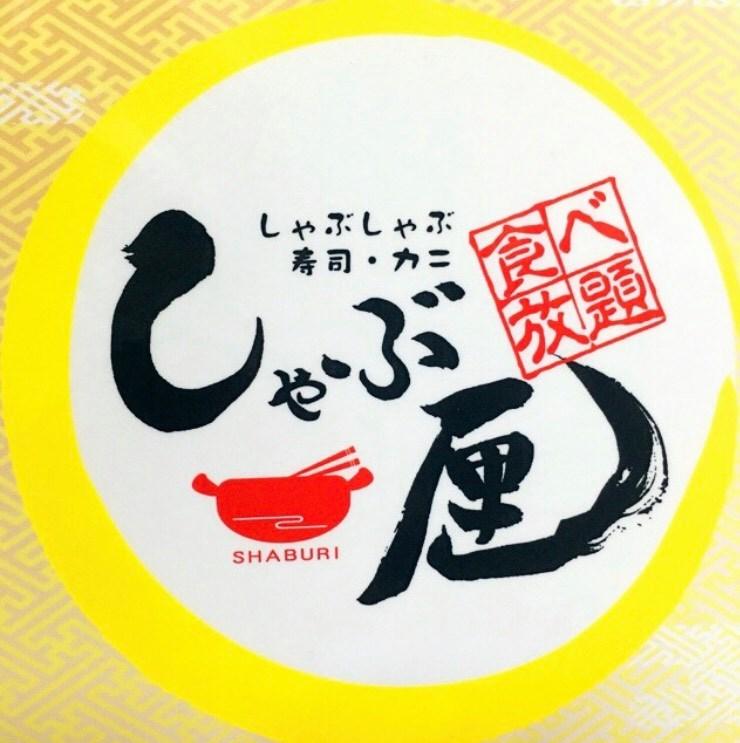 しゃぶしゃぶ
寿司・カニ
食べ
放題
しゃぶ厘
SHABURI